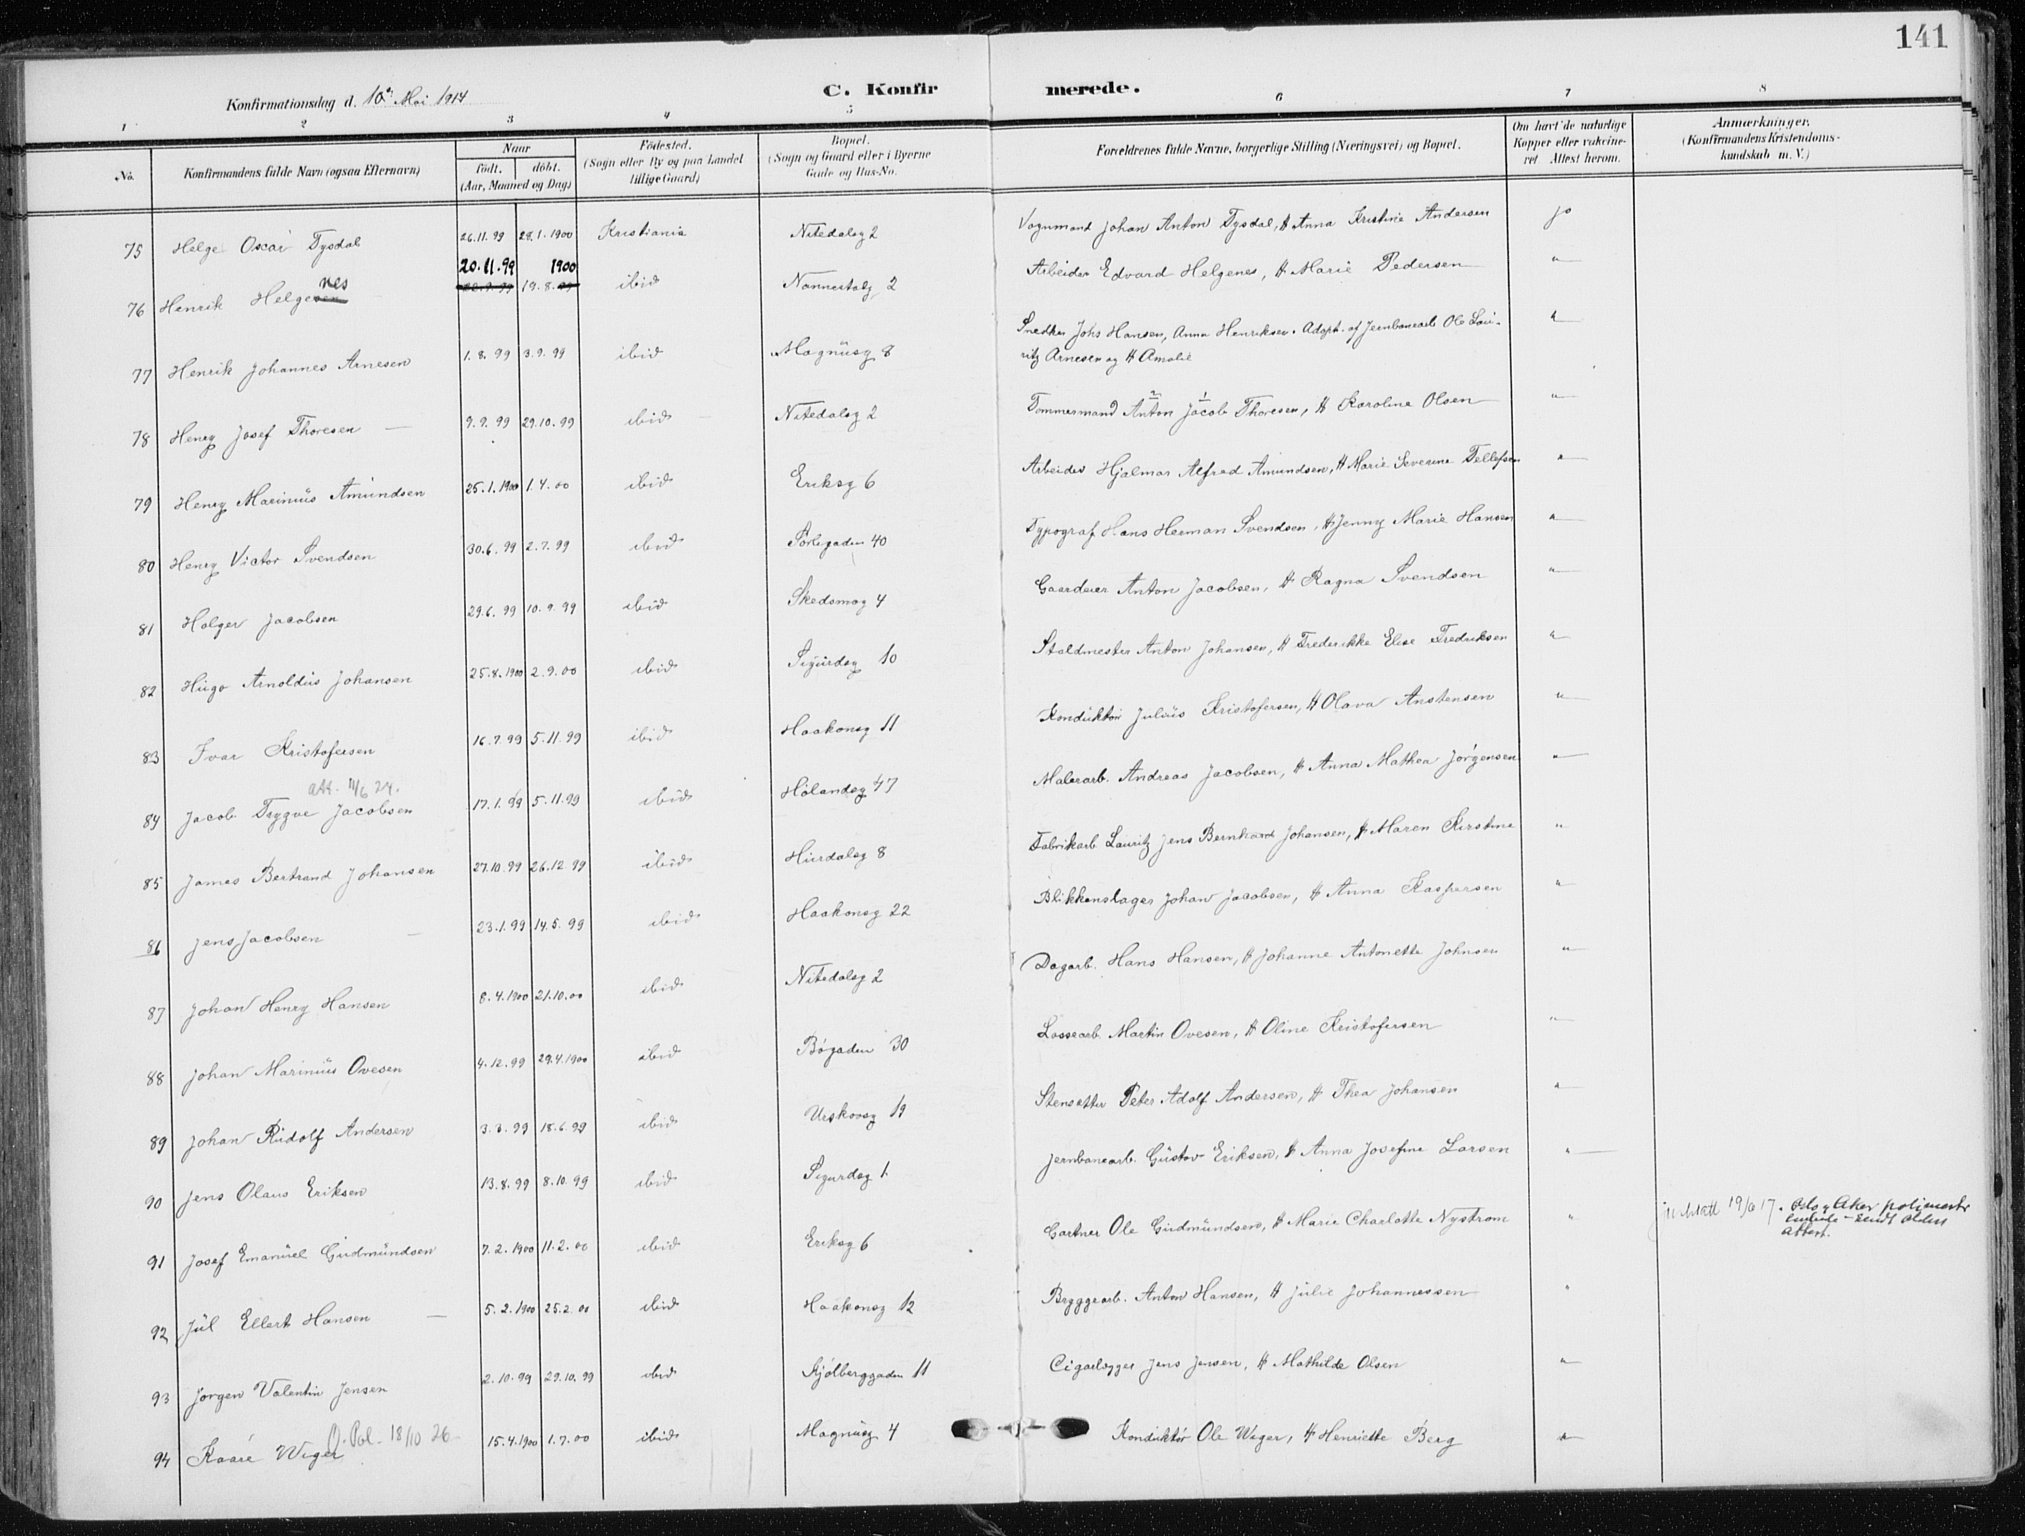 141
Konfirmationsdag d. 10de Mai 1914 C. Konfirmerede.
1 2 3 4 5 6 7 8
No. Konfirmandens fulde Navn (ogsaa Efternavn) Naar født. døbt. (Aar, Maaned og Dag) Fødested. (Sogn eller By og paa Landet tillige Gaard) Bopæl. (Sogn og Gaard eller i Byerne Gade og Hus-No. Forældrenes fulde Navne, borgerlige Stilling (Næringsvei) og Bopæl. Om havt de naturlige Kopper eller vakcineret Attest herom. Anmærkninger. (Konfirmandens Kristendomskundskab m. V.)
75 Helge Oscar Tysdal 26.11.99 28.1.1900 Kristiania Nitedalsg 2 Vognmand Johan Anton Tysdal, H Anna Kristine Andersen ja
76 Henrik Helgenes 20.11.99 19.8.1900 ibid Nannestadg 2 Arbeider Edvard Helgenes, H Marie Pedersen "
77 Henrik Johannes Arnesen 1.8.99 3.9.99 ibid Magnusg 8 Snedker Johs Hansen, Anna Henriksen. Adopt. af Jernbanearb Ole Lau-
ritz Arnesen og H Amalie "
78 Henry Josef Thoresen 9.9.99 29.10.99 ibid Nitedalsg 2 Tømmermand Anton Jacob Thoresen, H Karoline Olsen "
79 Henry Marinius Amundsen 25.1.1900 1.4.00 ibid Eriksg 6 Arbeider Hjalmar Alfred Amundsen, H Marie Severine Tellefsen "
80 Henry Victor Svendsen 30.6.99 2.7.99 ibid Sørligaden 40 Typograf Hans Herman Svendsen, H Jenny Marie Hansen "
81 Holger Jacobsen 29.6.99 10.9.99 ibid Skedsmog 4 Gaardeier Anton Jacobsen, H Ragna Svendsen "
82 Hugo Arnoldus Johansen 25.8.1900 2.9.00 ibid Sigurdsg 10 Staldmester Anton Johansen, H Frederikke Elise Fredriksen "
83 Ivar Kristofersen 16.7.99 5.11.99 ibid Haakonsg 11 Konduktør Julius Kristofersen, H Olava Anstensen "
att. 11/6 24.
84 Jacob Trygve Jacobsen 17.1.99 5.11.99 ibid Hølandsg 47 Malerarb. Andreas Jacobsen, H Anna Mathea Jørgensen "
85 James Bertrand Johansen 27.10.99 26.12.99 ibid Hurdalsg 8 Fabrikarb Lauritz Jens Bernhard Johansen, H Maren Kirstine "
86 Jens Jacobsen 23.1.99 14.5.99 ibid Haakonsg 22 Blikkenslager Johan Jacobsen, H Anna Kaspersen "
87 Johan Henry Hansen 8.4.1900 21.10.00 ibid Nitedalsg 2 Dagarb. Hans Hansen, H Johanne Antonette Johnsen "
88 Johan Marinius Ovesen 4.12.99 29.4.1900 ibid Bøgaden 30 Lossearb. Martin Ovesen, H Oline Kristofersen "
89 Johan Rudolf Andersen 3.3.99 18.6.99 ibid Urskovsg 19 Stensætter Peter Adolf Andersen, H Thea Johansen "
90 Jens Olaus Eriksen 13.8.99 8.10.99 ibid Sigurdsg 1 Jernbanearb. Gustav Eriksen, H Anna Josefine Larsen "
91 Josef Emanuel Gudmundsen 7.2.1900 11.2.00 ibid Eriksg 6 Gartner Ole Gudmundsen, H Marie Charlotte Nystrom " 19/6 17. Oslo, Aker politimestr
attest.
92 Jul Ellert Hansen 5.2.1900 25.2.00 ibid Haakonsg 12 Bryggearb. Anton Hansen, H Julie Johannessen "
93 Jørgen Valentin Jensen 2.10.99 29.10.99 ibid Kjølberggaden 11 Cigarlægger Jens Jensen, H Mathilde Olsen "
O. Pol. 18/10 26
94 Kaare Wiger 15.4.1900 1.7.00 ibid Magnusg 4 Konduktør Ole Wiger, H Henriette Berg "